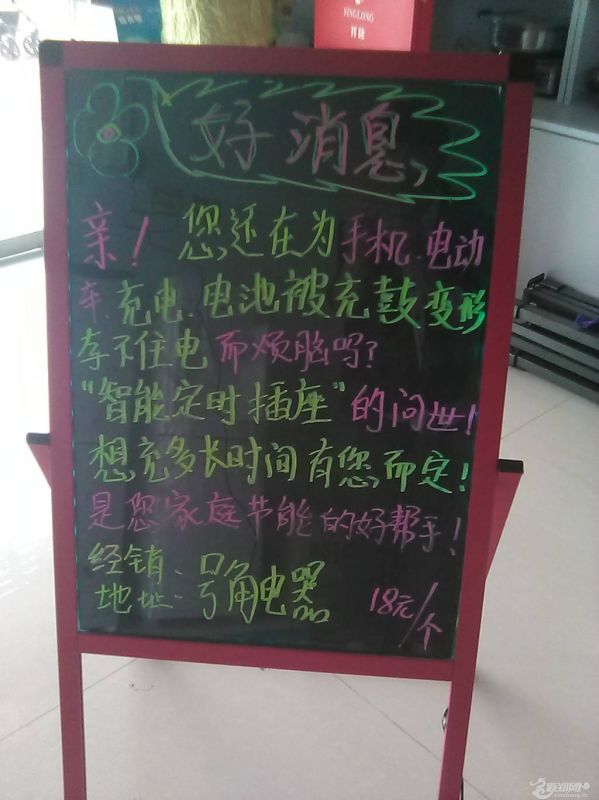 SINGLONG
祥隆
好消息
亲！您还在为手机.电动
车.充电.电池被充鼓变形
存不住电而烦脑吗?
"智能定时插座"的问世!
想充多长时间有您而定!
是您家庭节能的好帮手!
经销、
地址.号角电器 18元/个